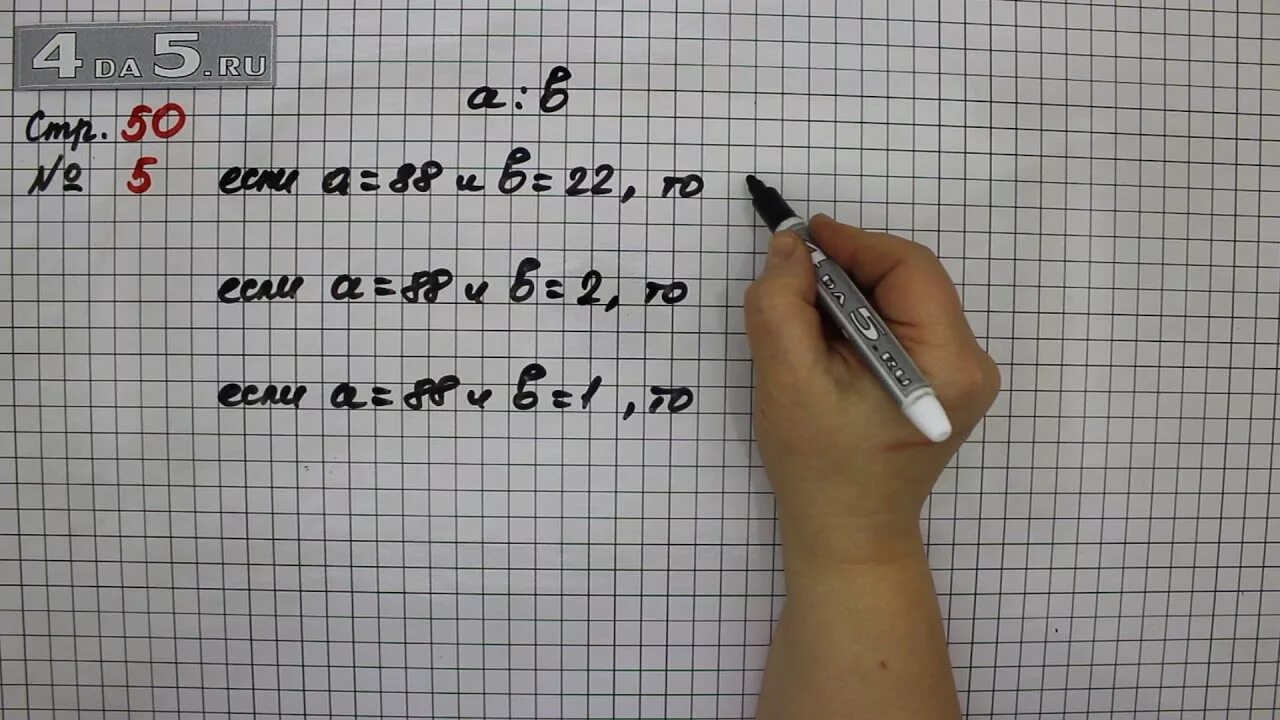 4 DA 5.RU
a : b
Стр. 50
№ 5 если a = 88 и b = 22, то
если a = 88 и b = 2, то
если a = 88 и b = 1, то
4 DA 5.RU